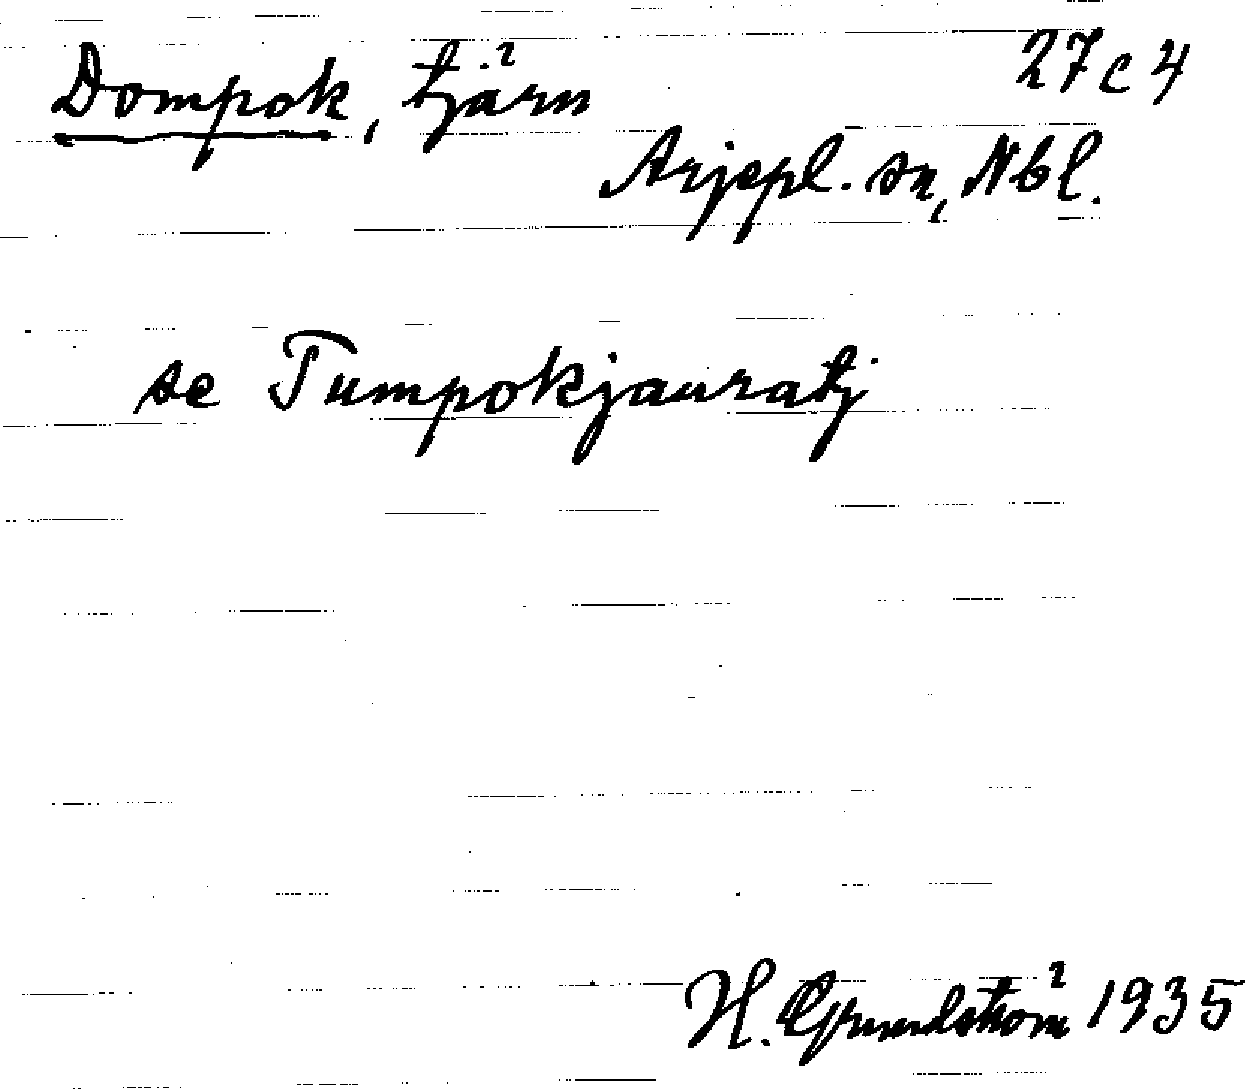 Dompok, tjärn 27c4
Arjepl. sn, Nbl.
se Tumpokjauratj
H. Grundström 1935